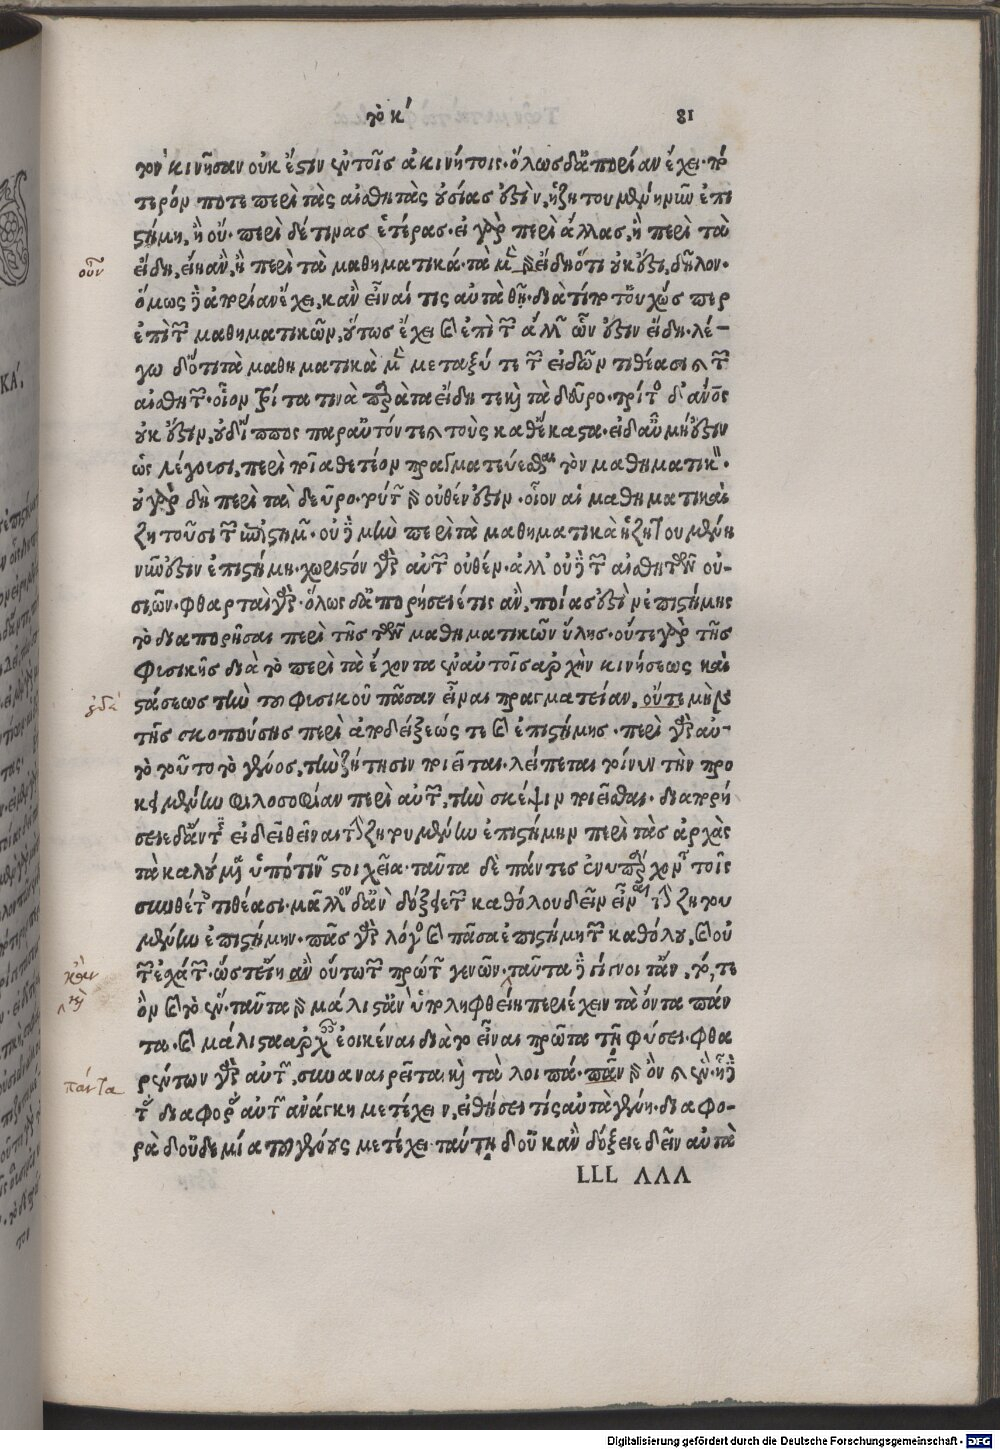 τὸ κ´ 81
τον κινῆσαν οὐκ ἔστιν ἐν τοῖς ἀκινήτοις. ὅλως δ' ἀπορίαν ἔχει πό
τερόν ποτε περὶ τὰς αἰσθητὰς οὐσίας ἐστὶν, ἡ ζητουμένη νῦν ἐπι
στήμη, ἢ οὔ. περὶ δέ τινας ἑτέρας. εἰ γὰρ περὶ ἄλλας, ἢ περὶ τὰ
οὖν
εἴδη, εἴη ἂν, ἢ περὶ τὰ μαθηματικά. τὰ μὲν εἴδη ὅτι οὐκ ἔστι, δῆλον.
ὅμως δὲ ἀπορίαν ἔχει, κἂν εἶναί τις αὐτὰ θῇ. διὰ τί ποτ' οὐχ ὥσπερ
ἐπὶ τῶν μαθηματικῶν, οὕτως ἔχει καὶ ἐπὶ τῶν ἄλλων ὧν ἐστιν εἴδη. λέ-
γω δ' ὅτι τὰ μαθηματικὰ μὲν μεταξύ τε τῶν εἰδῶν τιθέασι καὶ τῶν
αἰσθητῶν. οἷον τρίτα τινὰ παρὰ τὰ εἴδη τε καὶ τὰ δεῦρο. τρίτος δ' ἄνθρωπος
οὐκ ἔστιν, οὐδ' ἵππος παρ' αὐτόν τε καὶ τοὺς καθ' ἕκαστα. εἰ δ' αὖ μή ἐστιν
ὡς λέγουσι, περὶ ποῖα θετέον πραγματεύεσθαι τὸν μαθηματικόν.
οὐ γὰρ δὴ περὶ τὰ δεῦρο. τούτων γὰρ οὐθέν ἐστιν. οἷον αἱ μαθηματικαὶ
ζητοῦσι τῶν ἐπιστημῶν. οὐδὲ μὴν περὶ τὰ μαθηματικὰ ἡ ζητουμένη
νῦν ἐστιν ἐπιστήμη. χωριστόν γὰρ αὐτῶν οὐθέν. ἀλλ' οὐδὲ τῶν αἰσθητῶν οὐ-
σιῶν. φθαρταὶ γάρ. ὅλως δ' ἀπορήσειέ τις ἂν, ποίας ἐστὶν ἐπιστήμης
τὸ διαπορῆσαι περὶ τῆς τῶν μαθηματικῶν ὕλης. οὔτε γὰρ τῆς
φυσικῆς διὰ τὸ περὶ τὰ ἔχοντα ἐν αὑτοῖς ἀρχὴν κινήσεως καὶ
οὐδὲ
στάσεως τὴν τοῦ φυσικοῦ πᾶσαν εἶναι πραγματείαν, οὔτε μὴν
τῆς σκοπούσης περὶ ἀποδείξεώς τε καὶ ἐπιστήμης. περὶ γὰρ αὐ-
τὸ τοῦτο τὸ γένος, τὴν ζήτησιν ποιεῖται. λείπεται τοίνυν τὴν προ
κειμένην φιλοσοφίαν περὶ αὐτῶν, τὴν σκέψιν ποιεῖσθαι. διαπορή
σειε δ' ἄν τις εἰ δεῖ θεῖναι τὴν ζητουμένην ἐπιστήμην περὶ τὰς ἀρχὰς
τὰς καλουμένας ὑπό τινων στοιχεῖα. ταῦτα δὲ πάντες ἐνυπάρχοντα τοῖς
συνθέτοις τιθέασι. μᾶλλον δ' ἂν δόξειε τῶν καθόλου δεῖν εἶναι τὴν ζητου
μένην ἐπιστήμην. πᾶς γὰρ λόγος καὶ πᾶσα ἐπιστήμη τῶν καθόλου, καὶ οὐ
τῶν ἐσχάτων. ὥστ' εἴη ἂν οὕτω τῶν πρώτων γενῶν. ταῦτα δὲ γίγνοιτ' ἂν, τό, τε
ὂν καὶ τὸ ἕν. ταῦτα γὰρ μάλιστ' ἂν ὑποληφθείη περιέχειν τὰ ὄντα πάν
καὶ
τα. καὶ μάλιστα ἀρχαῖς ἐοικέναι διὰ τὸ εἶναι πρῶτα τῇ φύσει. φθα
πάντα
ρέντων γὰρ αὐτῶν, συναναιρεῖται καὶ τὰ λοιπά. πᾶν γὰρ ὂν καὶ ἕν. ᾗ δὲ
τὰς διαφορὰς αὐτῶν ἀνάγκη μετέχειν, εἰ θήσει τις αὐτὰ γένη. διαφο-
ρὰ δ' οὐδεμία τοῦ γένους μετέχει. ταύτῃ δ' οὐκ ἂν δόξειε δεῖν αὐτὰ
LLL ΛΛΛ
Digitalisierung gefördert durch die Deutsche Forschungsgemeinschaft - DFG